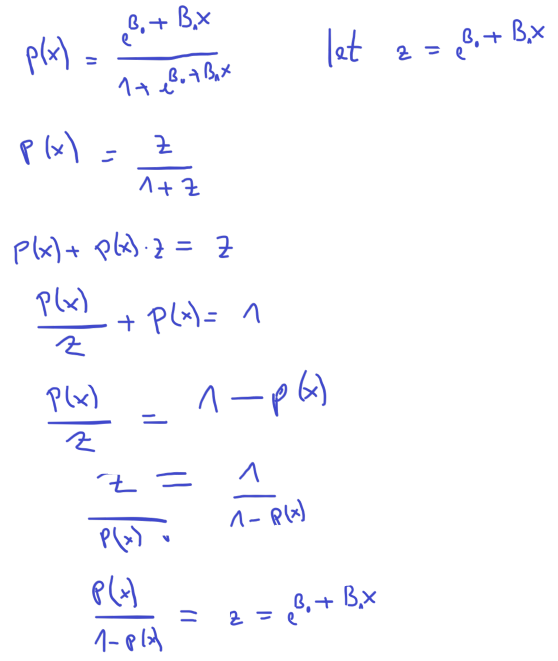 p(x) = e^(β₀ + β₁x) / (1 + e^(β₀ + β₁x)) let z = e^(β₀ + β₁x)
p(x) = z / (1 + z)
p(x) + p(x) · z = z
p(x) / z + p(x) = 1
p(x) / z = 1 - p(x)
z / p(x) = 1 / (1 - p(x))
p(x) / (1 - p(x)) = z = e^(β₀ + β₁x)